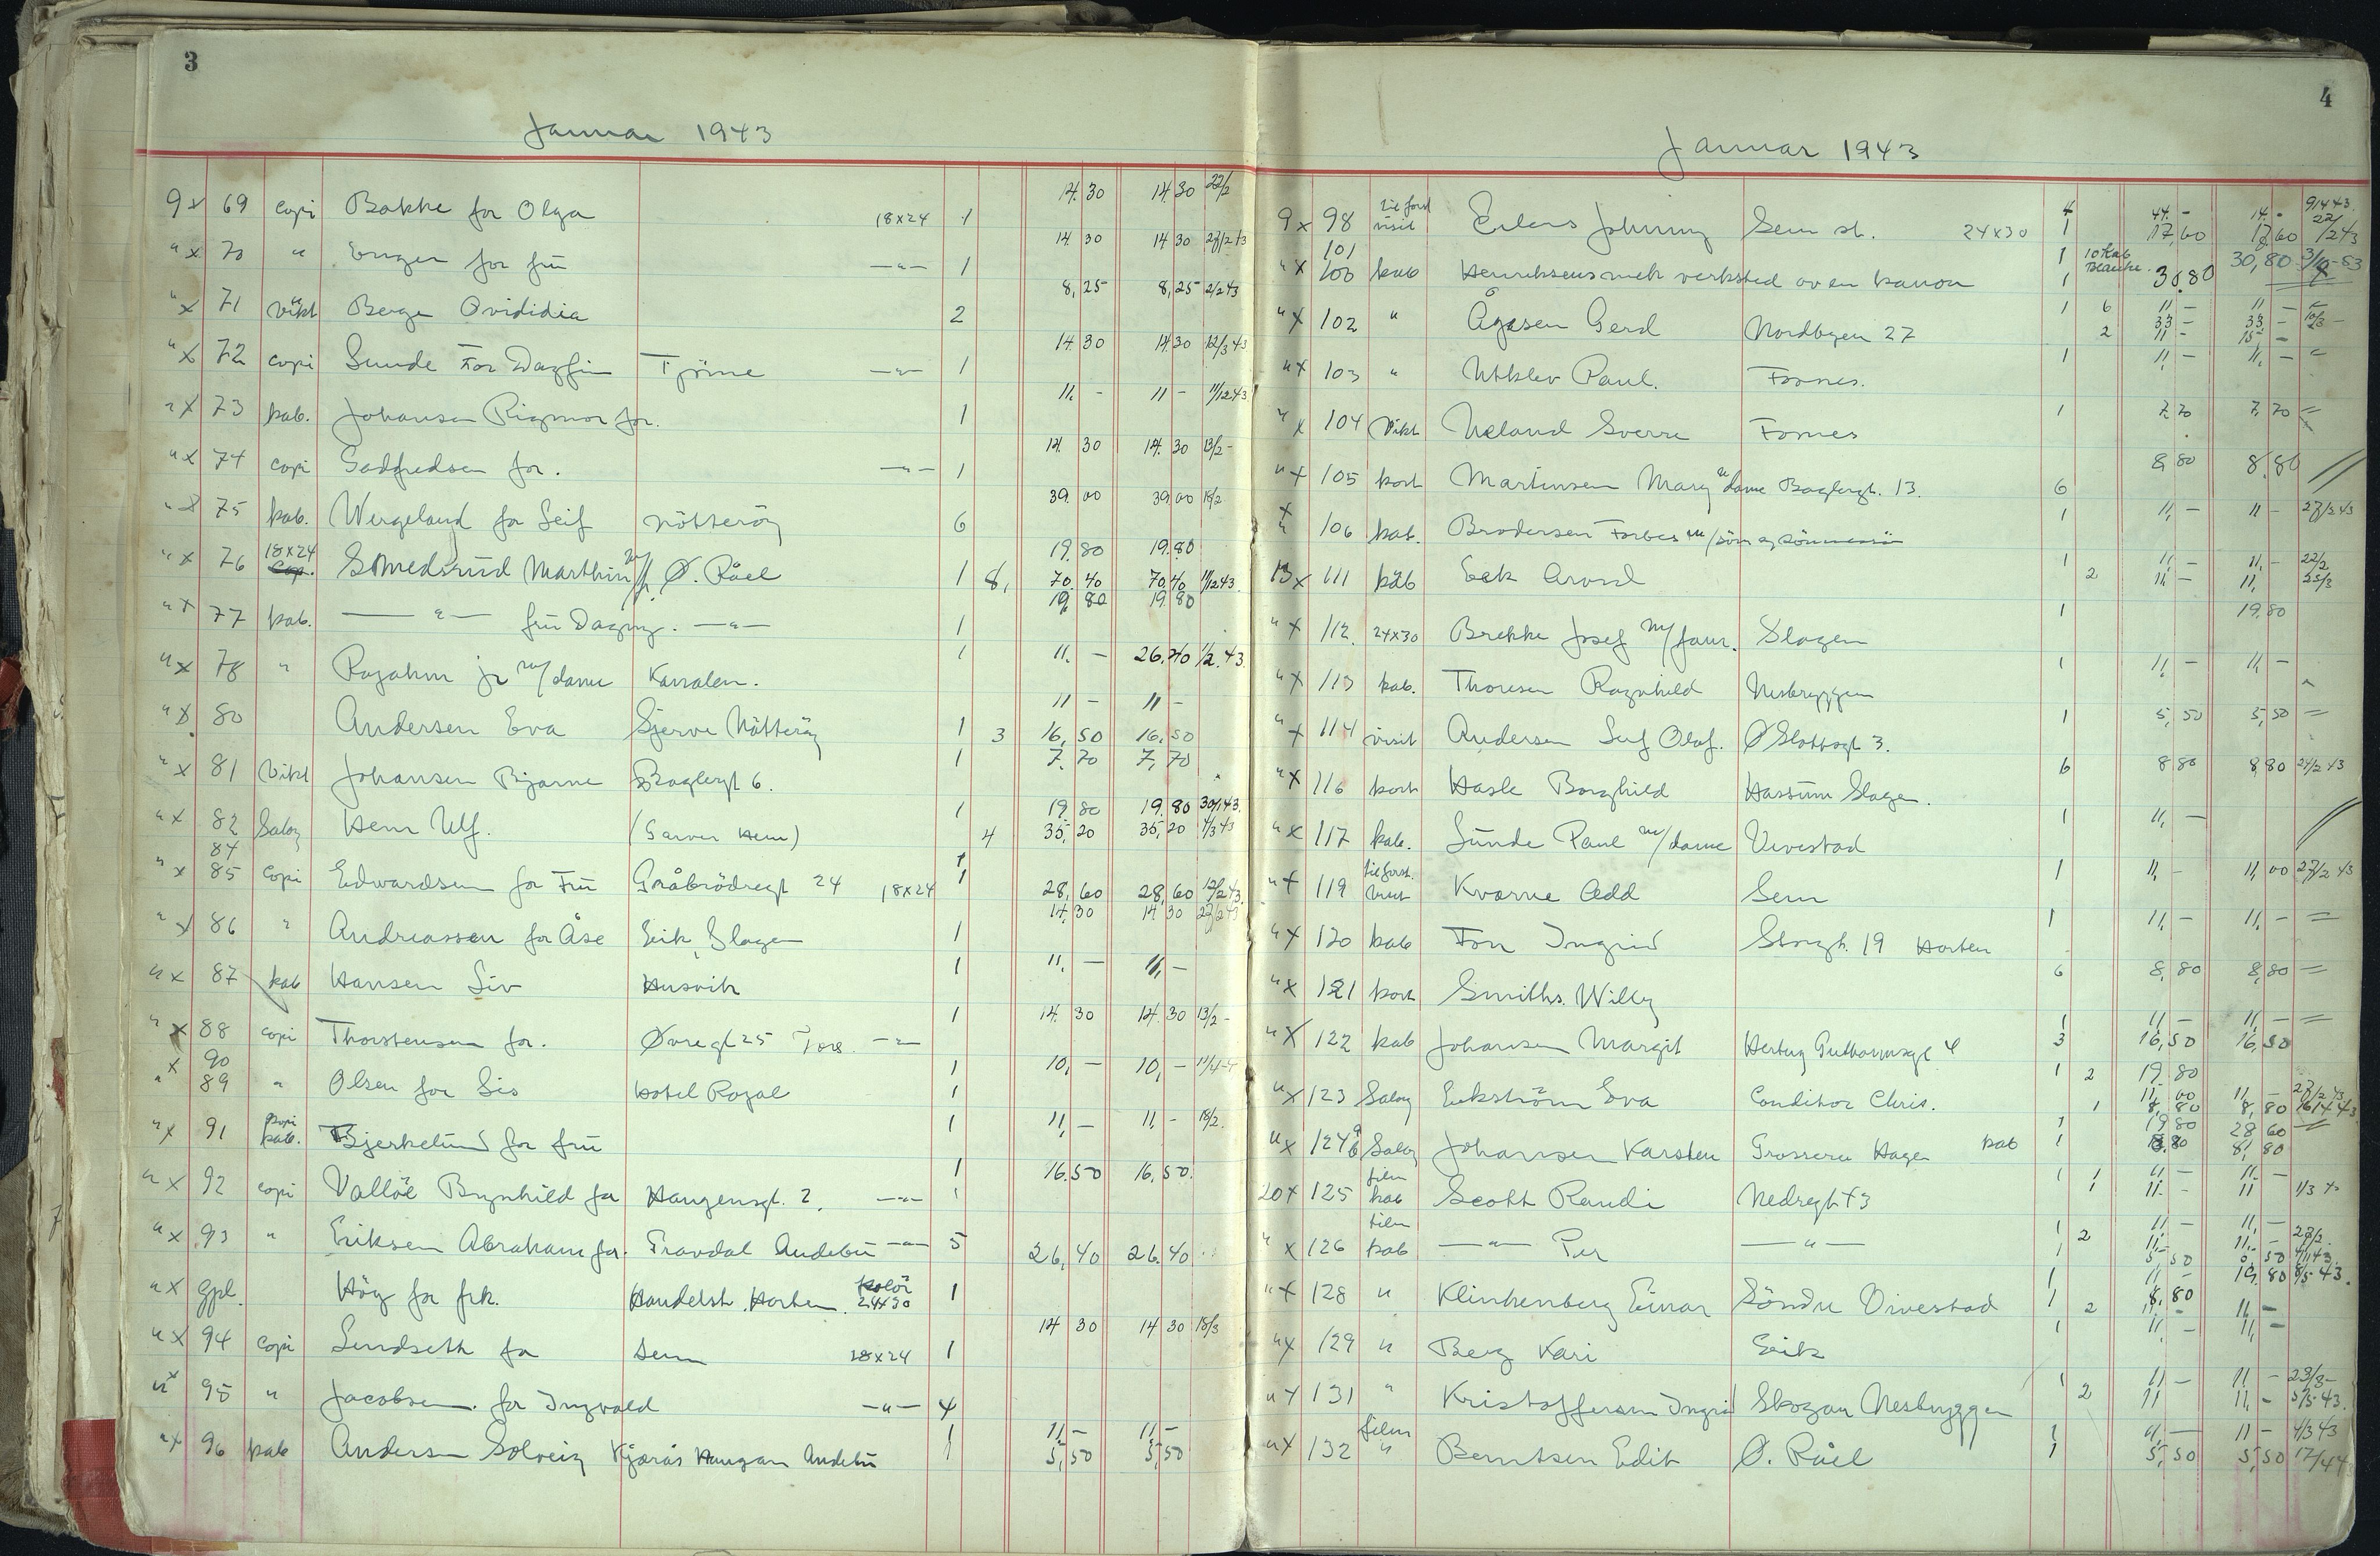 3
Januar 1943
9 x 69 copi Bakke for Olga 18x24 1 14.30 14.30 22/2
" x 70 " Enger for frü —"— 1 14 30 14 30
" x 71 Vikt Berge Ovididia 2 8,25 8,25 2/2 43
" x 72 copi Sunde For Dagfin Tjöme —"— 1 14.30 14.30 12/3 43
" x 73 kab. Johansen Rigmor for. 1 11. - 11 - 11/2 43
" x 74 copi Godfredsen for. —"— 1 14. 30 14. 30 13/2 -
" x 75 kab. Wergeland for Leif Nötteröy 6 39.00 39,00
" x 76 18x24 Smedsrüd Marthin Ø. Råel 1 8, 19.80 19.80
70.40 70.40 11/2 43
" x 77 kab. —"— frü Dagny. —"— 1 19,80 19.80
" x 78 " jr m/dame Kanalen. 1 11. - 26,40 1/2.43
" x 80 Andersen Eva Gjerve Nötteröy 1 3 11 - 11 -
16,50 16.50
" x 81 Vikt Johansen Bjarne Baglergt 6. 1 7.70 7,70
" x 82 Saloy Hem Ulf. (Garver Hem) 1 4 19.80 19.80 30/1 43.
35,20 35,20 1/3 43
84
" x 85 copi Edwardsen for Frü Gråbrödregt 24 18x24 1 1 28,60 28,60 12/2 43.
" x 86 " Andreassen for Åse Eik, Slagen 1 14,30 14 30
" x 87 kab Hansen Liv Husvik 1 11, — 11, -
" x 88 copi Thorstensen for. Øvregt 25 —"— 1 14.30 14.30 13/2 -
x 90
" 89 " Olsen for Lis Hotel Royal 1 1 10, - 10, -
" x 91 copi kab. Bjerkelünd for frü 1 11, - 11, - 18/2.
" x 92 copi Vallöe Brynhild for Haugensgt. 2, —"— 1 1 16.50 16,50.
" x 93 " Eriksen Abraham for. Travdal Andebü —"— 5 26,40 26.40
" x gpl. Höy for frk. Handelsh. Horten. kolör 24x30 1
" x 94 copi Lindseth for Sem 18x24 1 14 30 14 30 18/3
" x 95 " Jacobsen. for Ingvald —"— 4
" x 96 kab Andersen Solveig Kjærås Haugan Andebü 1 1 11 - 11 -
5,50 5,50
4
Januar 1943
9 x 98 visit Eilers Johnny Sem st. 24x30 4 1 44. - 14. - 9/1 43.
17,60 17,60 22/2 43
101
" x 100 kab Henriksens mek verksted av en kanon 1 1 10 kab Blanke. 30.80 30,80
" x 102 " Ågesen Gerd Nordbyen 27 1 6 11 - 11 -
2 33 - 33, -
11 - 15 -
" x 103 " Utklev Paul. Fornes. 1 11, - 11, -
" x 104 Vikt Ueland Sverre Fornes 1 7,70 7,70
" x 105 kort Martinsen Mary m/dame Baglergt. 13. 6 8,80 8,80
x " 106 kab. Brodersen Forbes m/ 1 11, - 11 - 27/2 43
13 x 111 kab Eek Arvid 1 2 11, - 11, - 22/2
11, - 11, 25/3
" x 112. 24x30 Brekke Josef m/fam. Slagen 1 19,80
" x 113 kab. Thoresen Ragnhild Nesbryggen 1 11, - 11, -
" x 114 visit Andersen Leif Olaf. Ø Slottsgt 3. 1 5,50 5,50
" x 116 kort Hasle Borghild Hassüm Slagen. 6 8 80 8,80 24/2 43
" x 117 kab. Sünde Paul m/dame Vivestad 1 11, —
" x 119 Kvarne Odd Sem 1 11, - 11,00 27/2 43
" x 120 kab Fon Ingrid Storgt. 19 Horten 1 11, - 11, -
" x 121 kort Smiths. Willy 6 8,80 8,80
" x 122 kab Johansen Margit Hertug Guthormsgt 4 1 3 11 - 11, -
16,50 16,50
" x 123 Saloy Eekström Eva Conditor Chris. 1 2 19.80
1 11,00 11, - 27/2 43.
8,80 8,80 16/4 43
" x 124 a b Saloy Johansen Karsten Grosserer Hagen kab 1 1 19.80 28 60
8.80 8,80
20 x 125 film kab Scott Randi Nedregt 43 1 1 11 - 11 -
1 11. - 11 1/3 43
" x 126 film kab —"— Per —"— 1 1 2 11 - 11, -
11, - 11, -
5 50 5,50
" x 128 " Klinkenberg Einar Söndre Vivestad 1 1 2 11 - 19,80 8/5 43.
8,80
11, - 11, -
" x 129 " Berg Kari Eik 1 11 - 11, -
" x 131 " Kristoffersen Ingrid Skogan Nesbryggen 1 2 11 - 11, - 23/3 -
11 11, - 5/5 43.
" x 132 film " Berntsen Edit Ø. Råel 1 1 11, — 11 - 4/3 43
5,50 5,50